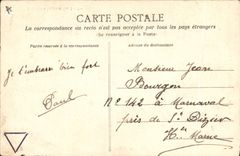 CARTE POSTALE
La correspondance au recto n'est pas acceptée par tous les pays étrangers
(Se renseigner à la Poste)
Je t'embrasse bien fort
Paul
Monsieur Jean
Bourgon
N° 142 à Marnaval
près de St Dizier
Hte Marne